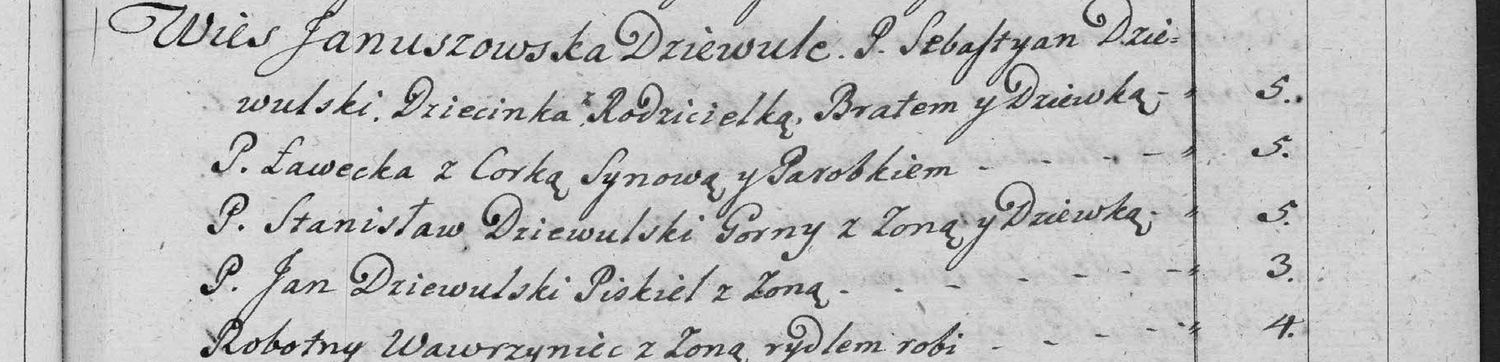 Wies Januszowska Dziewule. P. Sebastyan Dzie=
wulski, Dziecinka z Rodzicielką, Bratem y Dziewką - " 5.
P. Ławecka z Corką Synową y Parobkiem - - - - " 5.
P. Stanisław Dziewulski Gorny z Zoną y Dziewką - " 5.
P. Jan Dziewulski Piskiel z Zoną - - - - - - " 3.
Robotny Wawrzyniec z Zoną rydlem robi - - - - " 4.